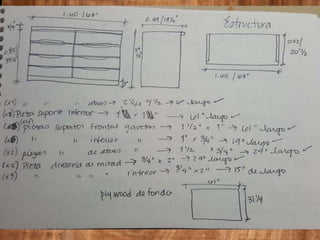 1.60 / 63"
0.49 / 19¼"
Estructura
0.52 / 20½"
1.60 / 63"
atras → 2¼ x 4½ → 6" largo ✓
Pieza soporte inferior → → 61" largo ✓
piezas soportes frontal gavetas → 1½" x 1" → 61" largo ✓
" " inferior → 1" x ¾" → 19" largo ✓
(x2) piezas " de atras → 1½ x ¾" → 24" largo ✓
Pieza divisoria de mitad → ¾" x 2" → 29" largo ✓
(x3) " " " inferior → ¾" x 2" → 15" de largo
plywood de fondo
65"
31¼